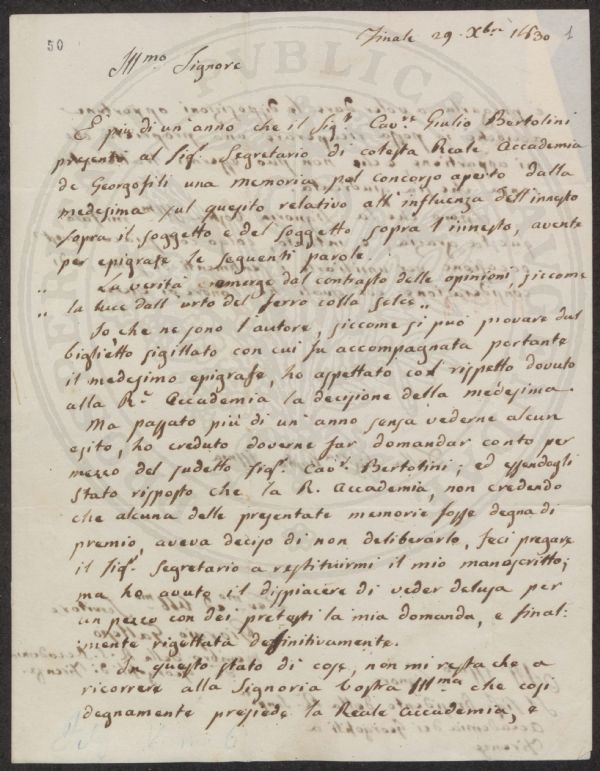 50
Finale 29 Xbre 1830
1
Illmo Signore
È più di un'anno che il Sigr Cavre Giulio Bertolini
presentò al Sigr Segretario di cotesta Reale Accademia
de Georgofili una memoria pel concorso aperto dalla
medesima sul quesito relativo all'influenza dell'innesto
sopra il soggetto e del soggetto sopra l'innesto, avente
per epigrafe le seguenti parole.
" La verità emerge dal contrasto delle opinioni, siccome
" la luce dall'urto del ferro colla selce "
Io che ne sono l'autore, siccome si può provare dal
biglietto sigillato con cui fu accompagnata portante
il medesimo epigrafe, ho aspettato col rispetto dovuto
alla Re Accademia la decisione della medesima.
Ma passato più di un'anno senza vederne alcun
esito, ho creduto doverne far domandar conto per
mezzo del sudetto Sigr Cavr Bertolini; ed essendogli
stato risposto che la R. Accademia, non credendo
che alcuna delle presentate memorie fosse degna di
premio, aveva deciso di non deliberarlo, feci pregare
il Sigr Segretario a restituirmi il mio manoscritto;
ma ho avuto il dispiacere di veder delusa per
un pezzo con dei pretesti la mia domanda, e final:
:mente rigettata definitivamente.
In questo stato di cose, non mi resta che a
ricorrere alla Signoria Vostra Illma che così
degnamente presiede la Reale Accademia, e